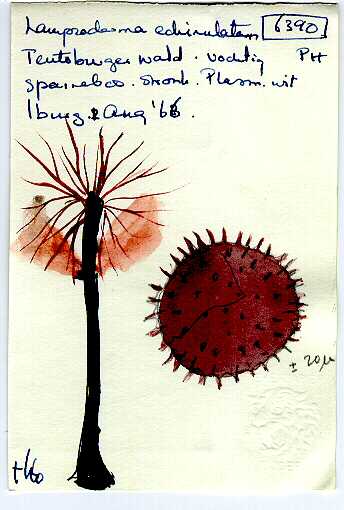 Lamproderma echinulatum 6390
Teutoburger wald. vochtig PH
sparrebos. stronk. Plasm. wit
Iburg 2 Aug '66.
± 20 µ